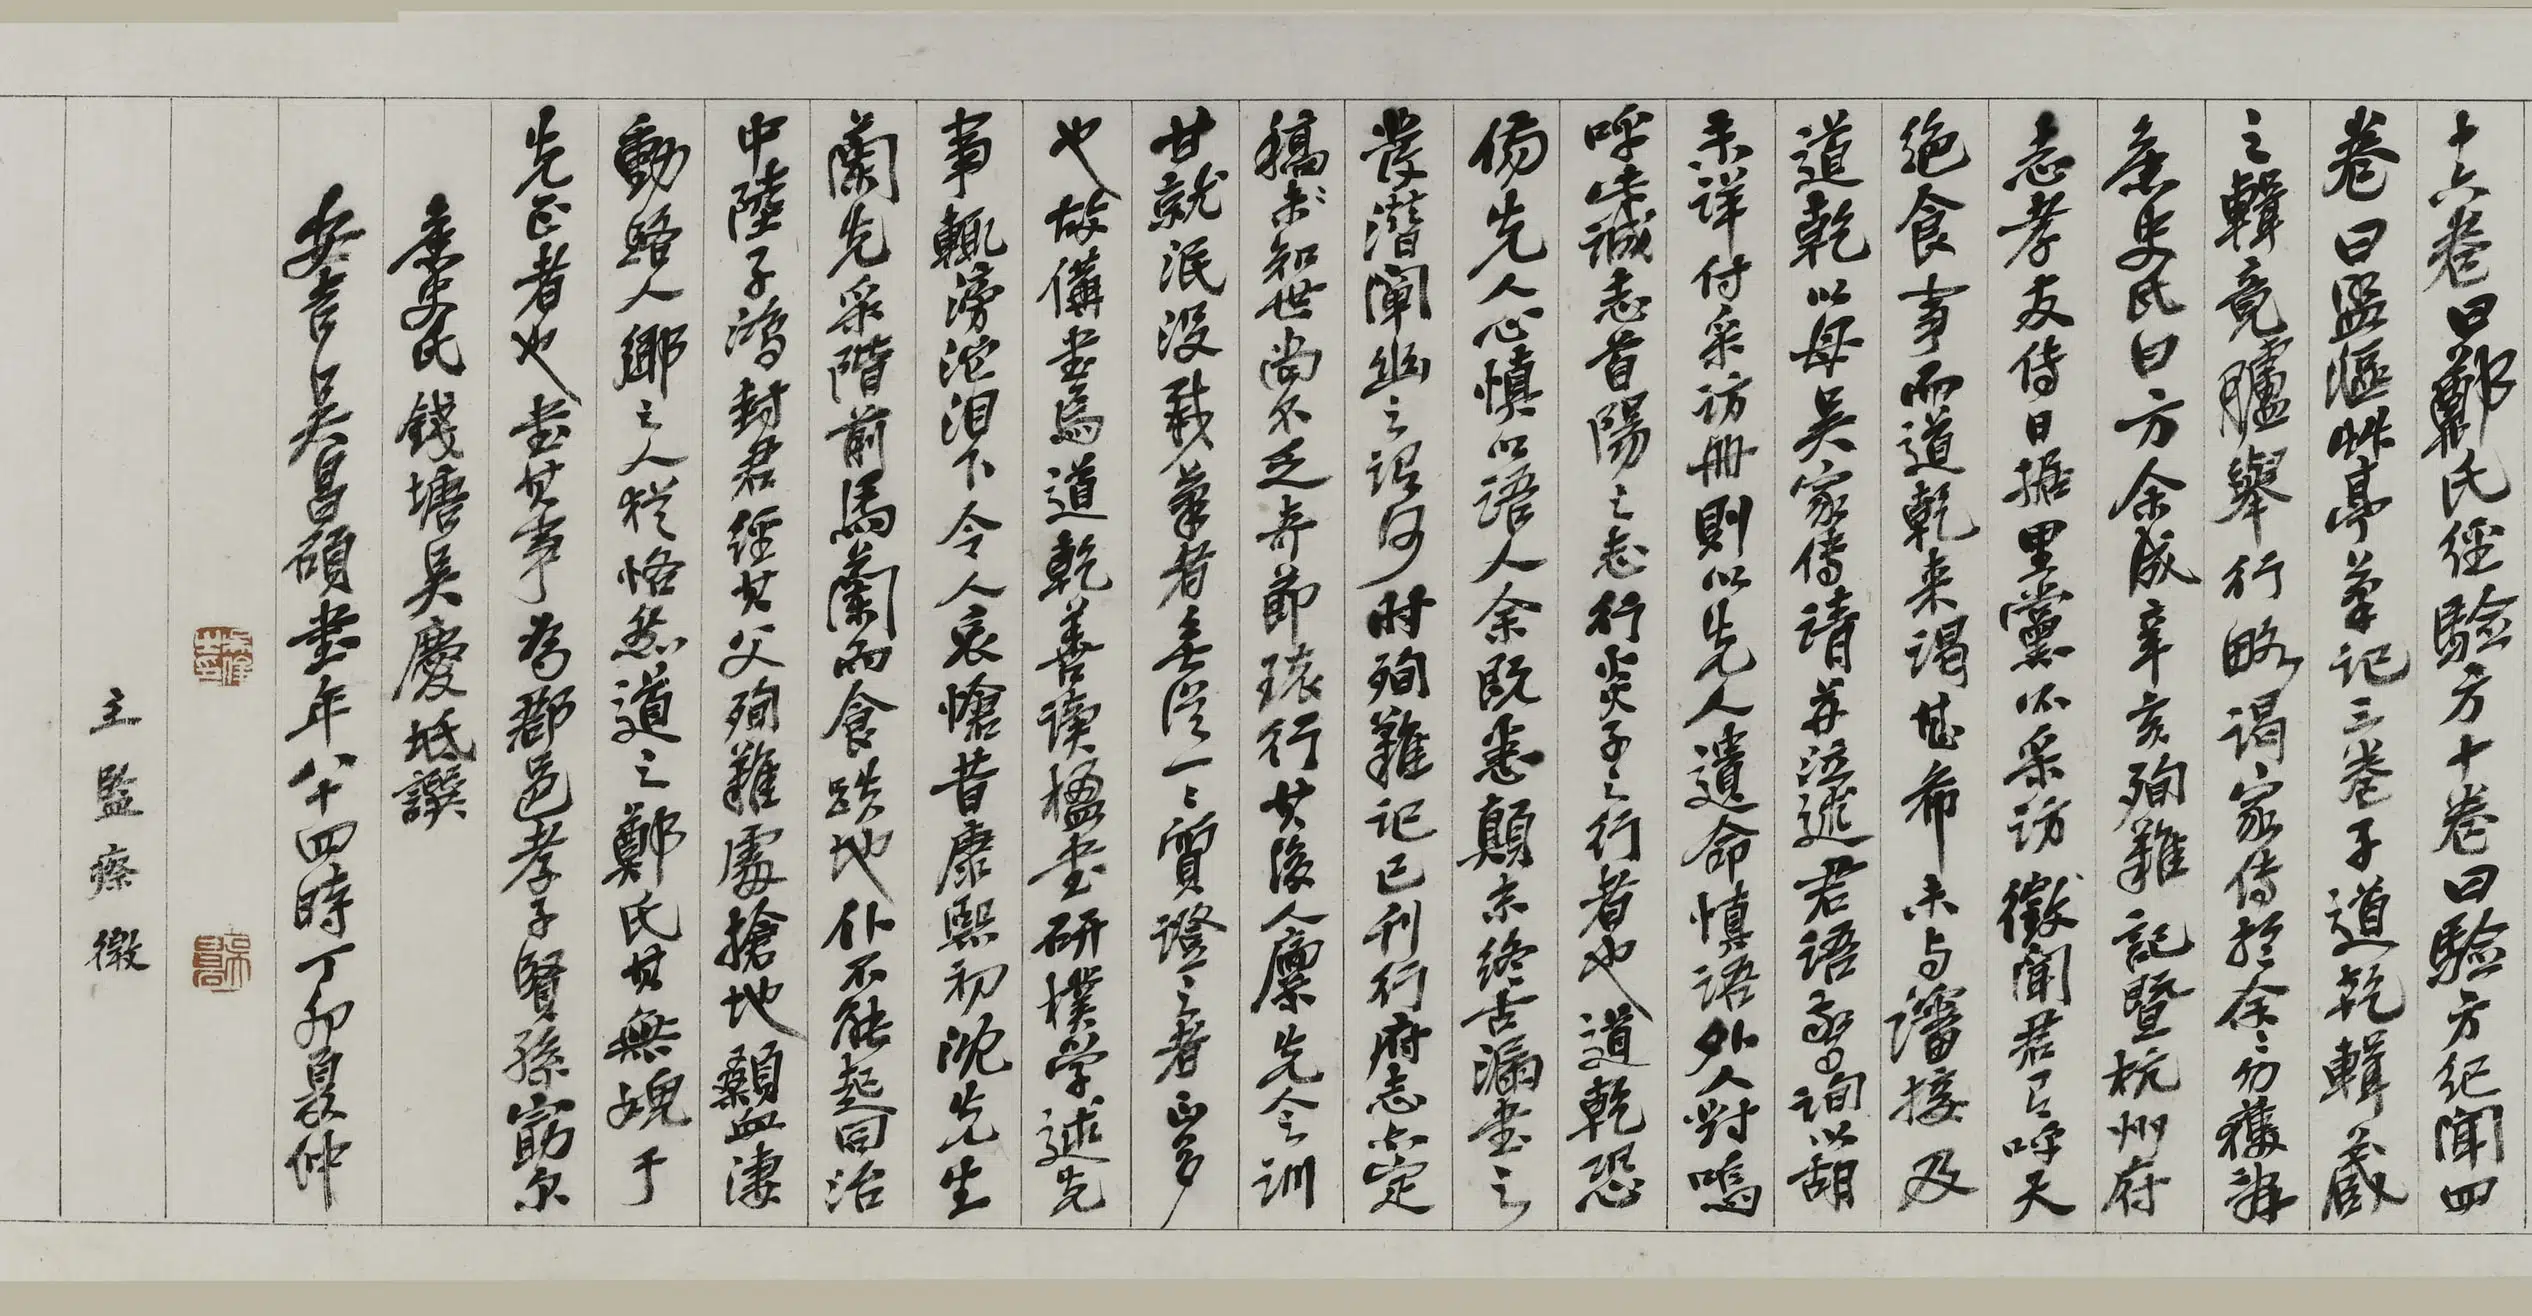 十六卷曰鄭氏經驗方十卷曰驗方紀聞四
卷曰盟漚艸亭筆記三卷子道乾輯藏
之輯竟臚舉行略謁家傳於余余勿獲辭
桼史氏曰方余成辛亥殉難記暨杭州府
志孝友傳日據里黨所采訪徵聞君已呼天
絕食事而道乾來謁甚希未与瀋接及
道乾以母吳家傳請并泣述君語為詢以胡
未詳付采訪冊則以先人遺命慎語外人對嗚
呼朱誠志首陽之志行炎子之行者也道乾恐
傷先人心慎以語人余既悉顛末終舌漏書之
發潛闡幽之謂何时殉難記已刊行府志亦定
稿求知世尚不乏奇節瑰行其後人廩先令訓
甘就泯沒載筆者無從一一質證之者正多
也故備書焉道乾善讀楹書研樸学述先
事輒滂沱泪下令人哀愴昔康熙初沈先生
蘭先采階前馬蘭而食跌地仆不能起同治
中陸子鴻封君經其父殉難處搶地顙血淒
動路人鄉之人猶恪然道之鄭氏其無媿于
先正者也書其事為郡邑孝子賢孫勸尔
桼史氏錢塘吳慶坻譔
安吉吳昌碩書年八十四時丁卯夏仲
王監察徵